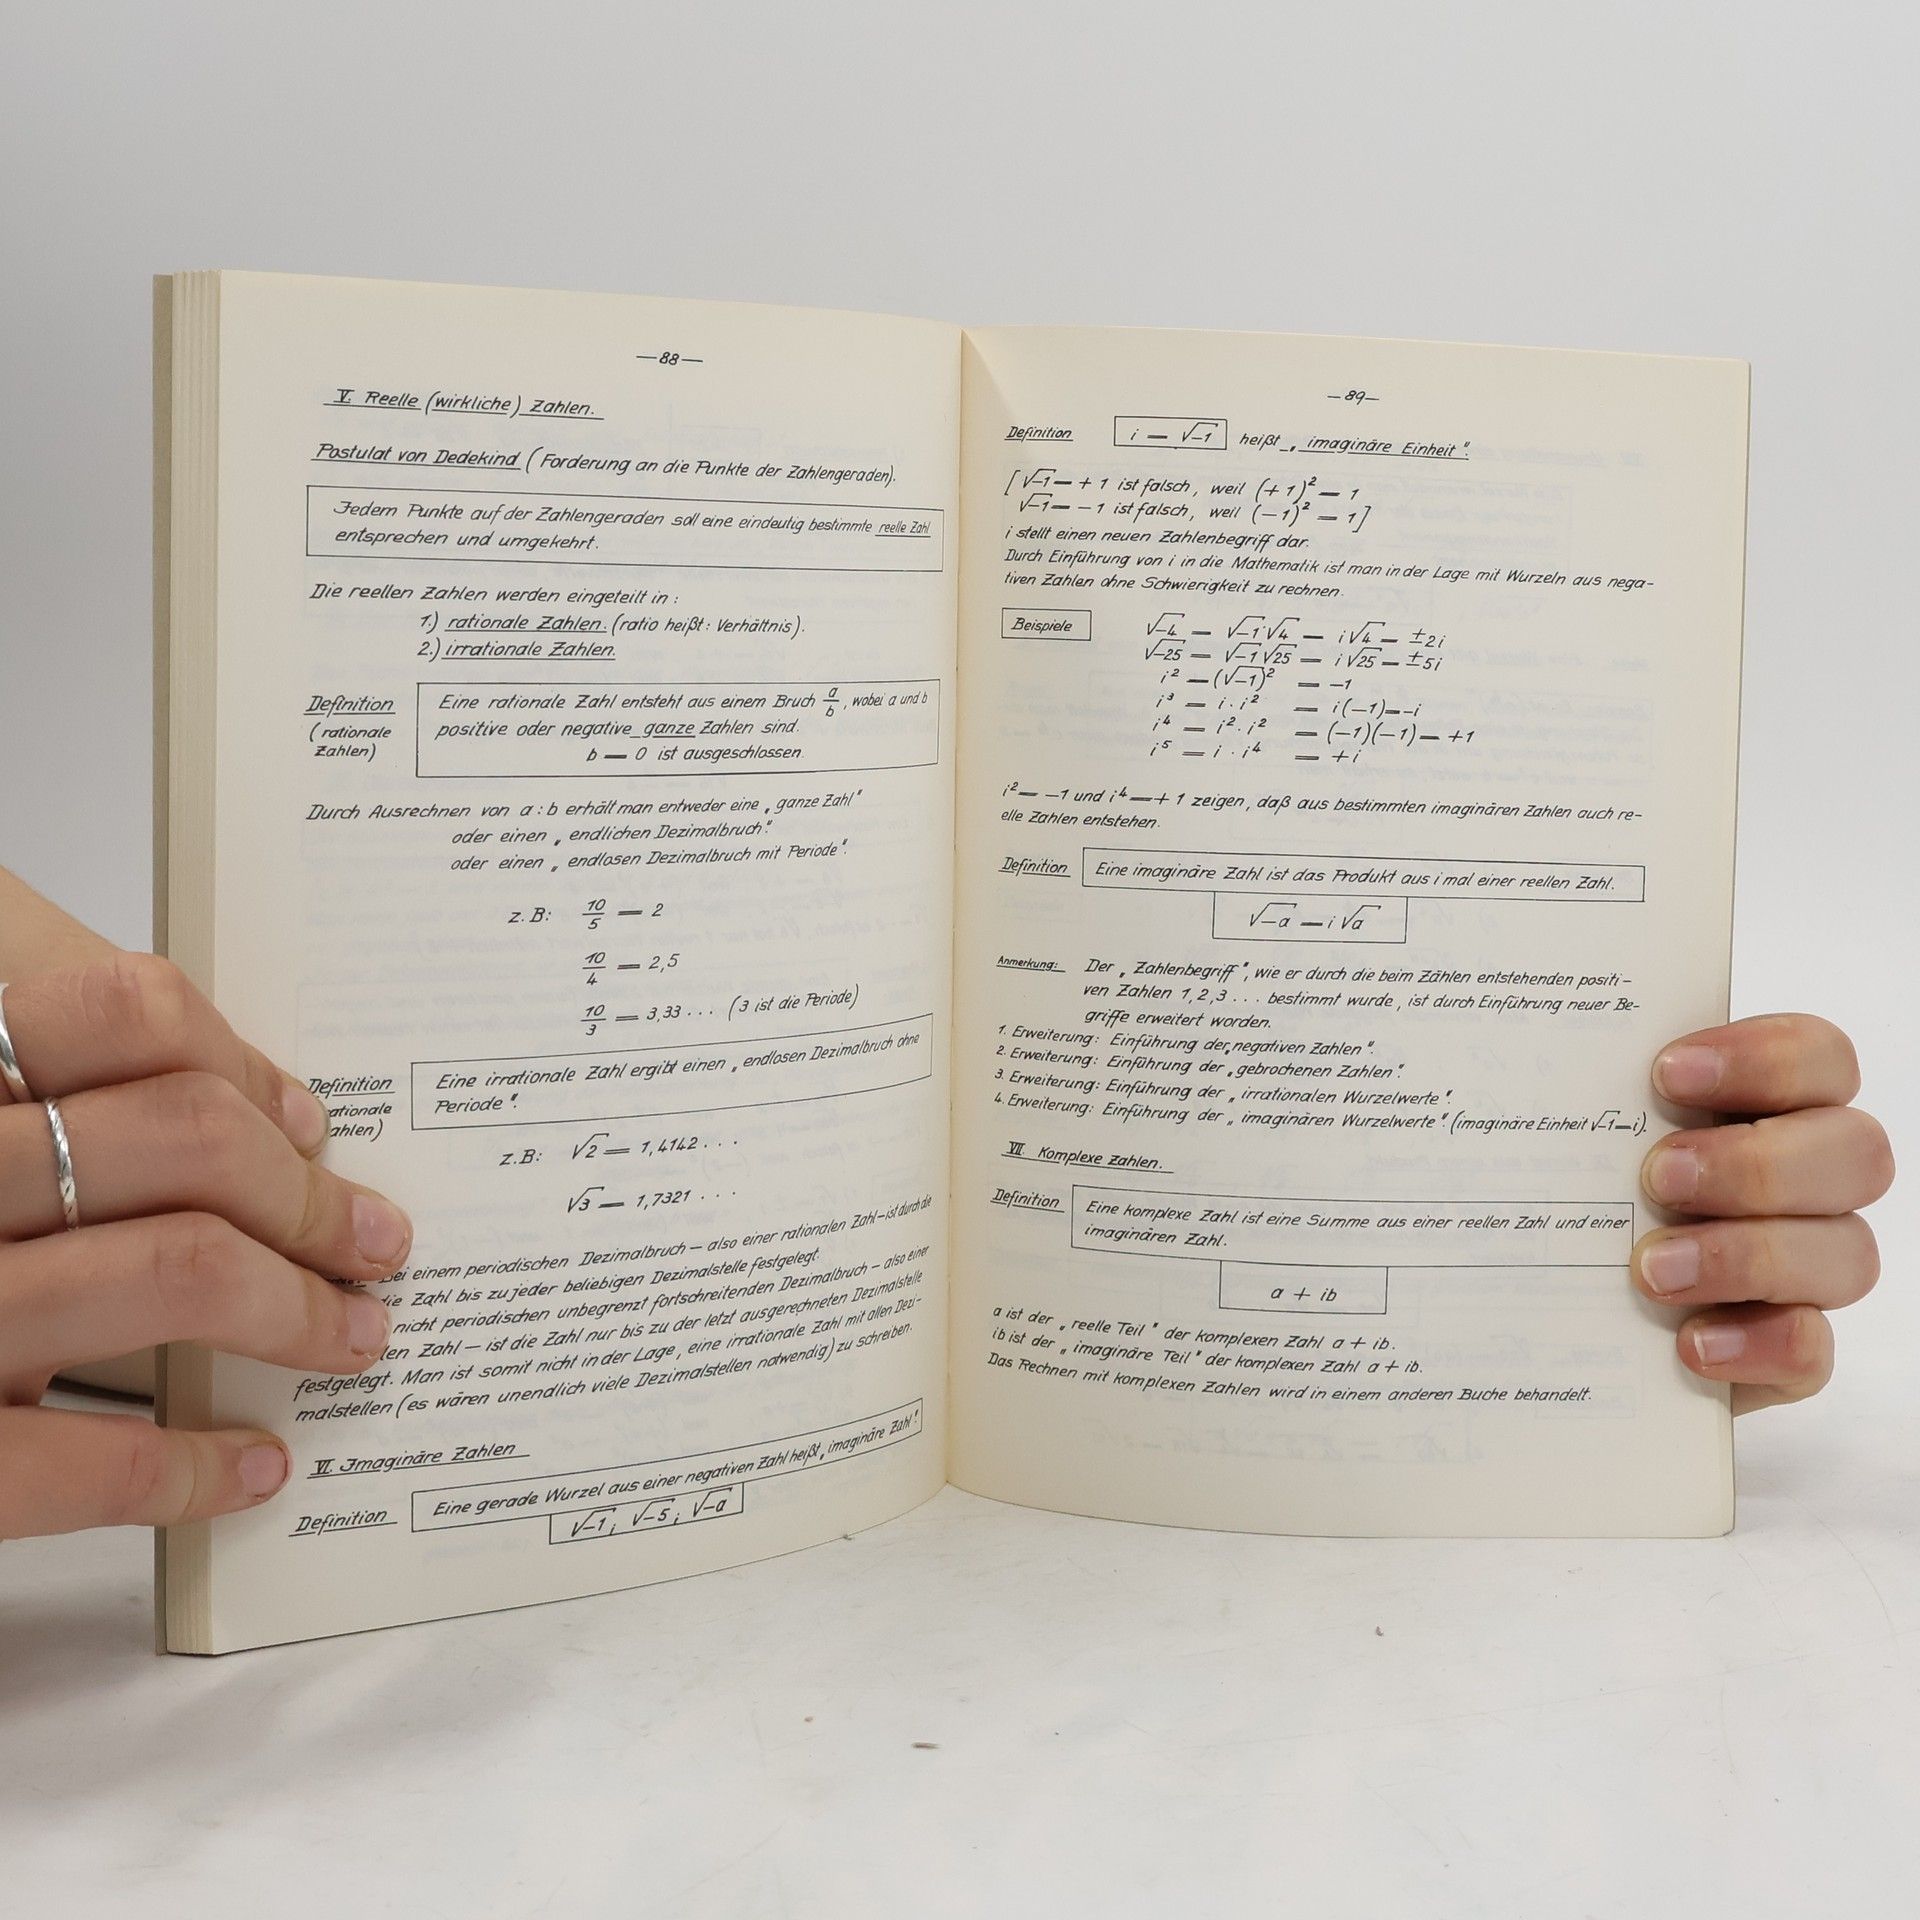 —88—
V. Reelle (wirkliche) Zahlen.
Postulat von Dedekind (Forderung an die Punkte der Zahlengeraden).
Jedem Punkte auf der Zahlengeraden soll eine eindeutig bestimmte reelle Zahl
entsprechen und umgekehrt.
Die reellen Zahlen werden eingeteilt in:
1.) rationale Zahlen. (ratio heißt: Verhältnis).
2.) irrationale Zahlen.
Definition
(rationale
Zahlen)
Eine rationale Zahl entsteht aus einem Bruch a/b, wobei a und b
positive oder negative ganze Zahlen sind.
b = 0 ist ausgeschlossen.
Durch Ausrechnen von a : b erhält man entweder eine „ganze Zahl"
oder einen „endlichen Dezimalbruch".
oder einen „endlosen Dezimalbruch mit Periode".
z.B: 10/5 = 2
10/4 = 2,5
10/3 = 3,33... (3 ist die Periode)
Definition
Eine irrationale Zahl ergibt einen „endlosen Dezimalbruch ohne
Periode".
z.B: √2 = 1,4142...
√3 = 1,7321...
einem periodischen Dezimalbruch — also einer rationalen Zahl — ist durch die
die Zahl bis zu jeder beliebigen Dezimalstelle festgelegt.
nicht periodischen unbegrenzt fortschreitenden Dezimalbruch — also einer
Zahl — ist die Zahl nur bis zu der letzt ausgerechneten Dezimalstelle
festgelegt. Man ist somit nicht in der Lage, eine irrationale Zahl mit allen Dezi-
malstellen (es wären unendlich viele Dezimalstellen notwendig) zu schreiben.
VI. Imaginäre Zahlen
Definition
Eine gerade Wurzel aus einer negativen Zahl heißt „imaginäre Zahl".
√-1; √-5; √-a
—89—
Definition i = √-1 heißt „imaginäre Einheit".
[√-1 = + 1 ist falsch, weil (+1)² = 1
√-1 = - 1 ist falsch, weil (-1)² = 1]
i stellt einen neuen Zahlenbegriff dar.
Durch Einführung von i in die Mathematik ist man in der Lage mit Wurzeln aus nega-
tiven Zahlen ohne Schwierigkeit zu rechnen.
Beispiele √-4 = √-1·√4 = i√4 = ±2i
√-25 = √-1√25 = i√25 = ±5i
i² = (√-1)² = -1
i³ = i · i² = i(-1)=-i
i⁴ = i² · i² = (-1)(-1) = +1
i⁵ = i · i⁴ = +i
i² = -1 und i⁴ = + 1 zeigen, daß aus bestimmten imaginären Zahlen auch re-
elle Zahlen entstehen.
Definition Eine imaginäre Zahl ist das Produkt aus i mal einer reellen Zahl.
√-a = i√a
Anmerkung: Der „Zahlenbegriff", wie er durch die beim Zählen entstehenden positi-
ven Zahlen 1,2,3... bestimmt wurde, ist durch Einführung neuer Be-
griffe erweitert worden.
1. Erweiterung: Einführung der „negativen Zahlen".
2. Erweiterung: Einführung der „gebrochenen Zahlen".
3. Erweiterung: Einführung der „irrationalen Wurzelwerte".
4. Erweiterung: Einführung der „imaginären Wurzelwerte". (imaginäre Einheit √-1=i).
VII. Komplexe Zahlen.
Definition Eine komplexe Zahl ist eine Summe aus einer reellen Zahl und einer
imaginären Zahl.
a + ib
a ist der „reelle Teil" der komplexen Zahl a + ib.
ib ist der „imaginäre Teil" der komplexen Zahl a + ib.
Das Rechnen mit komplexen Zahlen wird in einem anderen Buche behandelt.